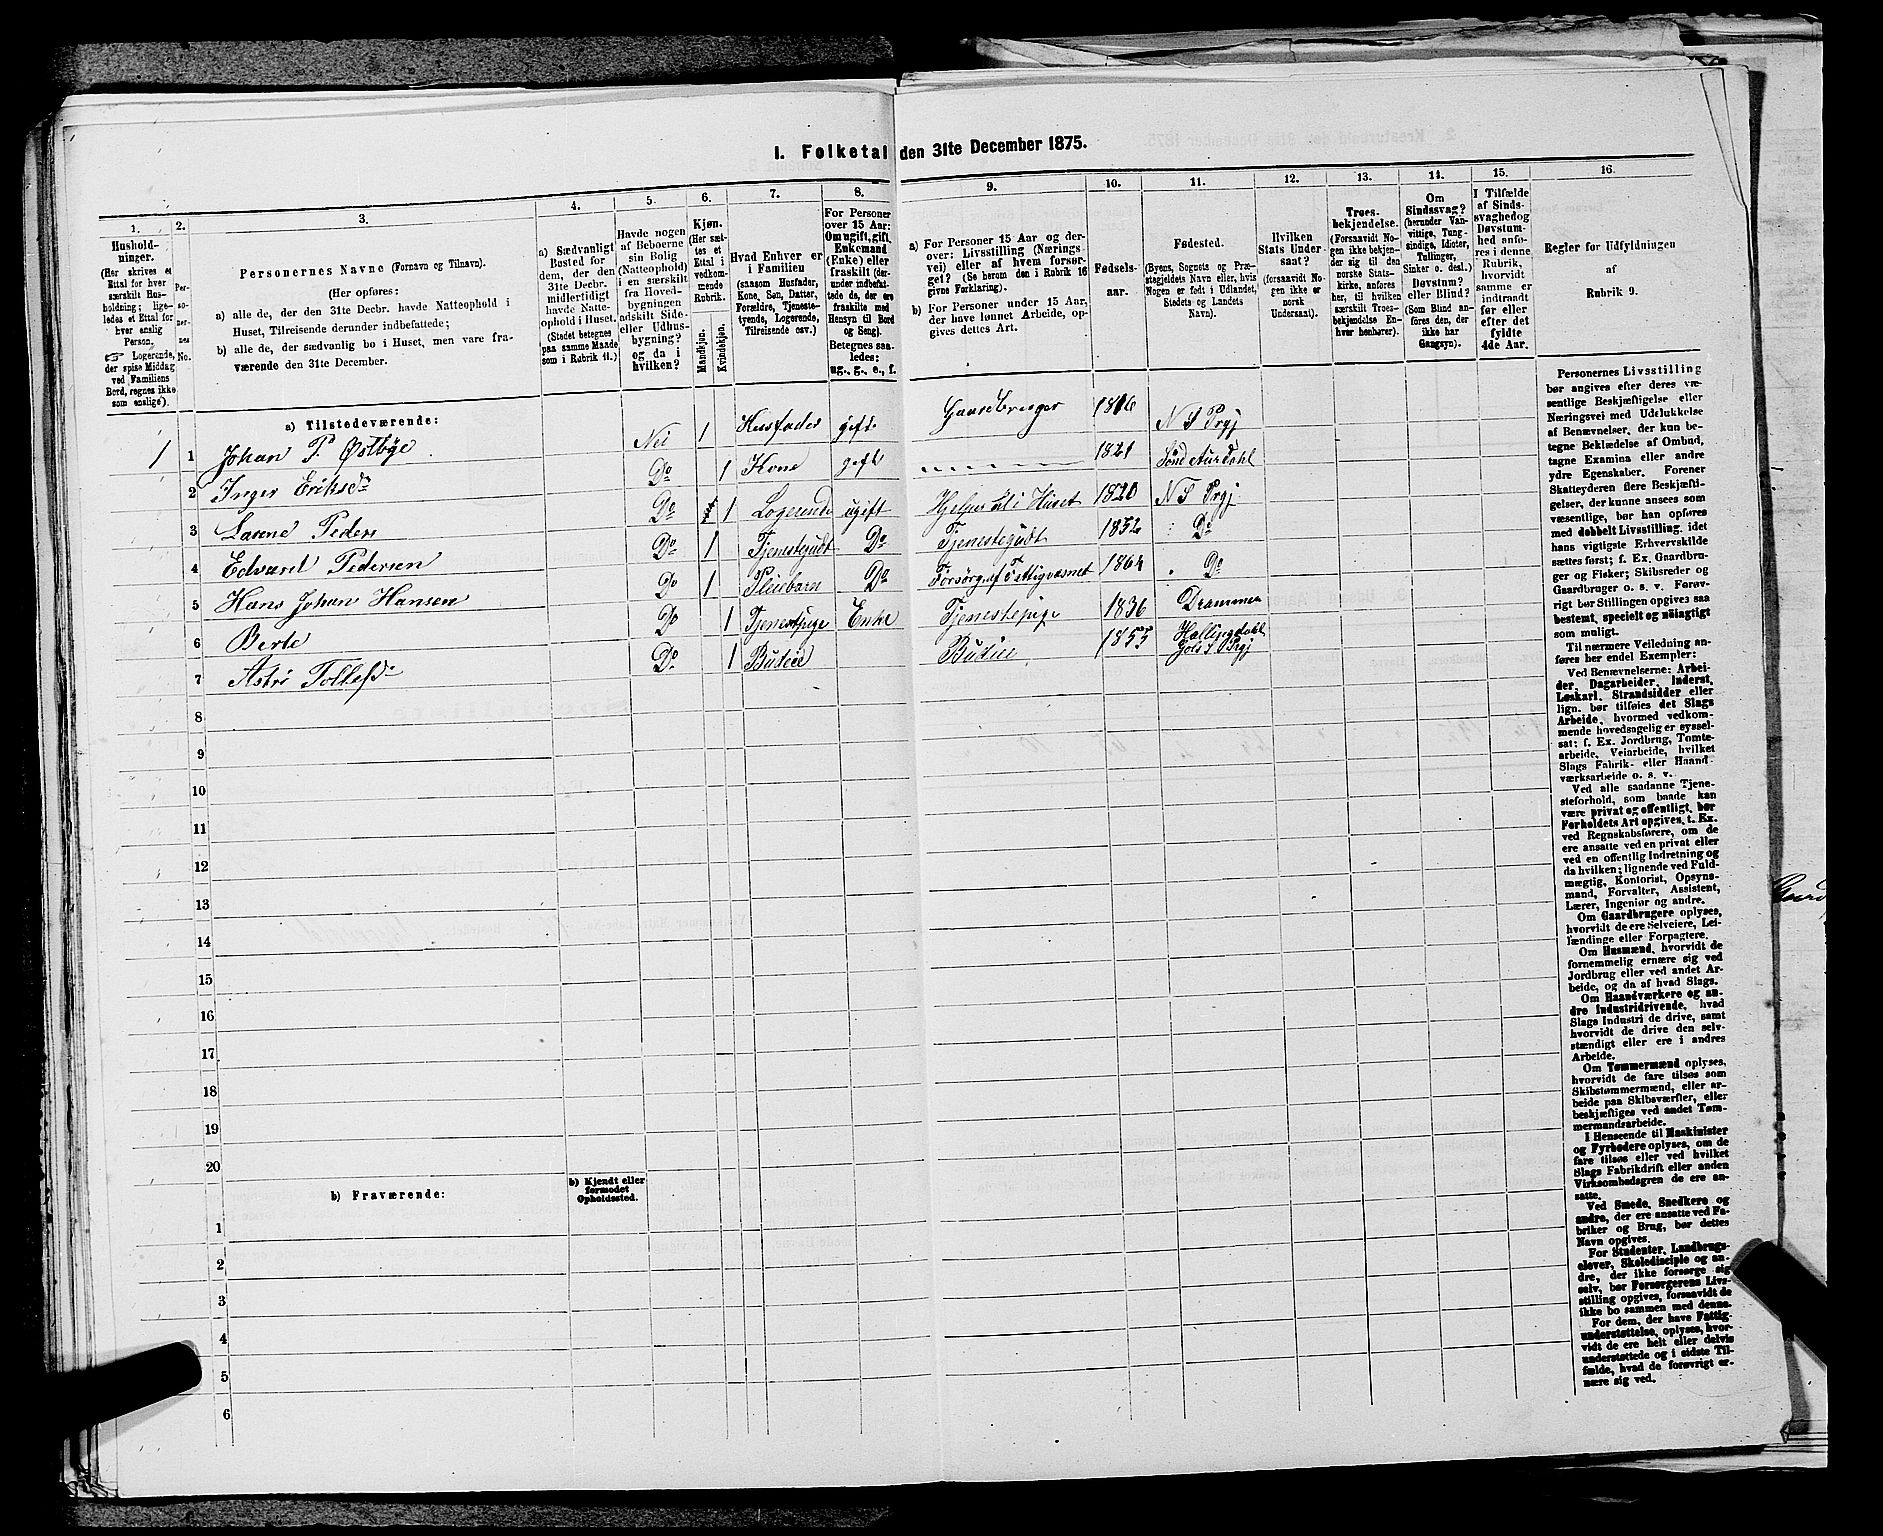 I. Folketal den 31te December 1875.
1. 2. 3. 4. 5. 6. 7. 8. 9. 10. 11. 12. 13. 14. 15. 16.
Husholdninger.
(Her skrives et
Ettal for hver
særskilt Husholdning;
ligeledes et Ettal for
hver enslig
Person.
☞ Logerende,
der spise Middag
ved Familiens
Bord, regnes ikke
som enslige).
Personernes No.
Personernes Navne (Fornavn og Tilnavn).
(Her opføres:
a) alle de, der den 31te Decbr. havde Natteophold i
Huset, Tilreisende derunder indbefattede;
b) alle de, der sædvanlig bo i Huset, men vare fraværende den 31te December.
a) Sædvanligt
Bosted for
dem, der den
31te Decbr.
midlertidigt
havde Natteophold i Huset.
(Stedet betegnes
paa samme Maade
som i Rubrik 11.)
Havde nogen
af Beboerne
sin Bolig
(Natteophold)
i en særskilt
fra Hovedbygningen
adskilt Sideeller Udhusbygning?
og da i
hvilken?
Kjøn.
(Her sættes et
Ettal i
vedkommende
Rubrik.
Mandkjøn.
Kvindekjøn.
Hvad Enhver er
i Familien
(saasom Husfader,
Kone, Søn, Datter,
Forældre, Tjenestetyende, Logerende,
Tilreisende osv.)
For Personer
over 15 Aar:
Om ugift, gift,
Enkemand
(Enke) eller
fraskilt (derunder indbefattede de, der ere
fraskilte med
Hensyn til Bord
og Seng).
Betegnes saaledes:
ug., g., e., f.
a) For Personer 15 Aar og derover: Livsstilling (Næringsvei) eller af hvem forsørget? (Se herom den i Rubrik 16
givne Forklaring).
b) For Personer under 15 Aar,
der have lønnet Arbeide, opgives dettes Art.
Fødselsaar.
Fødested.
(Byens, Sognets og Præstegjeldets Navn eller, hvis
Nogen er født i Udlandet,
Stedets og Landets
Navn).
Hvilken
Stats Undersaat?
(forsaavidt Nogen ikke er
norsk
Undersaat).
Troesbekjendelse.
(Forsaavidt Nogen ikke bekjender sig til den
norske Statskirke, anføres
her, til hvilken
særskilt Troesbekjendelse Enhver henhører).
Om
Sindssvag?
(herunder Vanvittige, Tungsindige, Idioter,
Tullinger,
Sinker o. desl.)
Døvstum?
eller Blind?
(Som Blind anføres den, der
ikke har
Gangsyn).
I Tilfælde
af Sindssvaghed og
Døvstumhed anføres i denne
Rubrik,
hvorvidt
samme er
indtraadt
før eller
efter det
fyldte
4de Aar.
Regler for Udfyldningen
af
Rubrik 9.
a) Tilstedeværende:
1 1 Johan P. Østbye Nei 1 Husfader gift Gaardbruger 1816 N S Prgj
2 Inger Eriksdr Do 1 Kone gift 1821 Sønd Aurdahl
3 Larene Peders Do 1 Logerende ugift Hjelper til i Huset 1820 N S Prgj
4 Edvard Pedersen Do 1 Tjenestegudt Do Tjenestegudt 1852 Do
5 Hans Johan Hansen Do 1 Pleiebarn Do Forsørg. af Fattigvæsnet 1864 Do
6 Berte Do 1 Tjenestpige Enke Tjenestepige 1836 Drammen
7 Astri Tollefsdr Do 1 Budeie Budeie 1855 Hallingdahl Gols S Prgj
8
9
10
11
12
13
14
15
16
17
18
19
20
b) Fraværende:
b) Kjendt eller
formodet
Opholdssted.
1
2
3
4
5
6
Personernes Livsstilling
bør angives efter deres væsentlige Beskjæftigelse eller
Næringsvei med Udelukkelse
af Benævnelser, der kun betegne Beklædelse af Ombud,
tagne Examina eller andre
ydre Egenskaber. Forener
Skatteyderen flere Beskjæftigelser, der kunne ansees som
væsentlige, bør han opføres
med dobbelt Livsstilling, idet
hans vigtigste Erhvervskilde
sættes først; f. Ex. Gaardbruger og Fisker; Skibsreder og
Gaardbruger o. s. v. Forøvrigt bør Stillingen opgives saa
bestemt, specielt og nøiagtigt
som muligt.
Til nærmere Veiledning anføres her endel Exempler:
Ved Benævnelserne: Arbeider, Dagarbeider, Inderst,
Løskarl, Strandsidder eller
lign. bør tilføies det Slags
Arbeide, hvormed vedkommende hovedsagelig er sysselsat: f. Ex. Jordbrug, Tomtearbeide, Veiarbeide, hvilket
Slags Fabrik- eller Haandværksarbeide o. s. v.
Ved alle saadanne Tjenesteforhold, som baade kan
være privat og offentligt, bør
Forholdets Art opgives, t. Ex.
ved Regnskabsførere, om de
ere ansatte ved en privat eller
ved en offentlig Indretning og
da hvilken; lignende ved Fuldmægtig, Kontorist, Opsynsmand, Forvalter, Assistent,
Lærer, Ingeniør og andre.
Om Gaardbrugere oplyses,
hvorvidt de ere Selveiere, Leilændinge eller Forpagtere.
Om Husmænd, hvorvidt de
fornemmelig ernære sig ved
Jordbrug eller ved andet Arbeide, og da af hvad Slags.
Om Haandværkere og andre Industridrivende, hvad
Slags Industri de drive, samt
hvorvidt de drive den selvstændigt eller ere i andres
Arbeide.
Om Tømmermænd oplyses,
hvorvidt de fare tilsøs som
Skibstømmermænd, eller arbeide paa Skibsværfter, eller
beskjæftiges ved andet Tømmermandsarbeide.
I Henseende til Maskinister
og Fyrbødere oplyses, om de
fare tilsøs eller ved hvilket
Slags Fabrikdrift eller anden
Virksomhedsgren de ere ansatte.
Ved Smede, Snedkere og
andre, der ere ansatte ved Fabriker og Brug, bør dettes
Navn opgives.
For Studenter, Landbrugselever, Skoledisciple og andre, der ikke forsørge sig
selv, bør Forsørgerens Livsstilling opgives, forsaavidt de
ikke bo sammen med denne.
For dem, der have Fattigunderstøttelse, oplyses, hvorvidt de ere helt eller delvis
understøttede og i sidste Tilfælde, hvad de forøvrigt ernære sig ved.